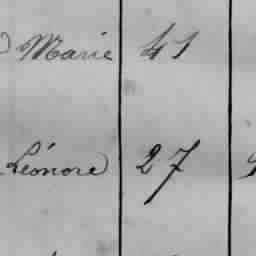 Marie 41
Léonore 27